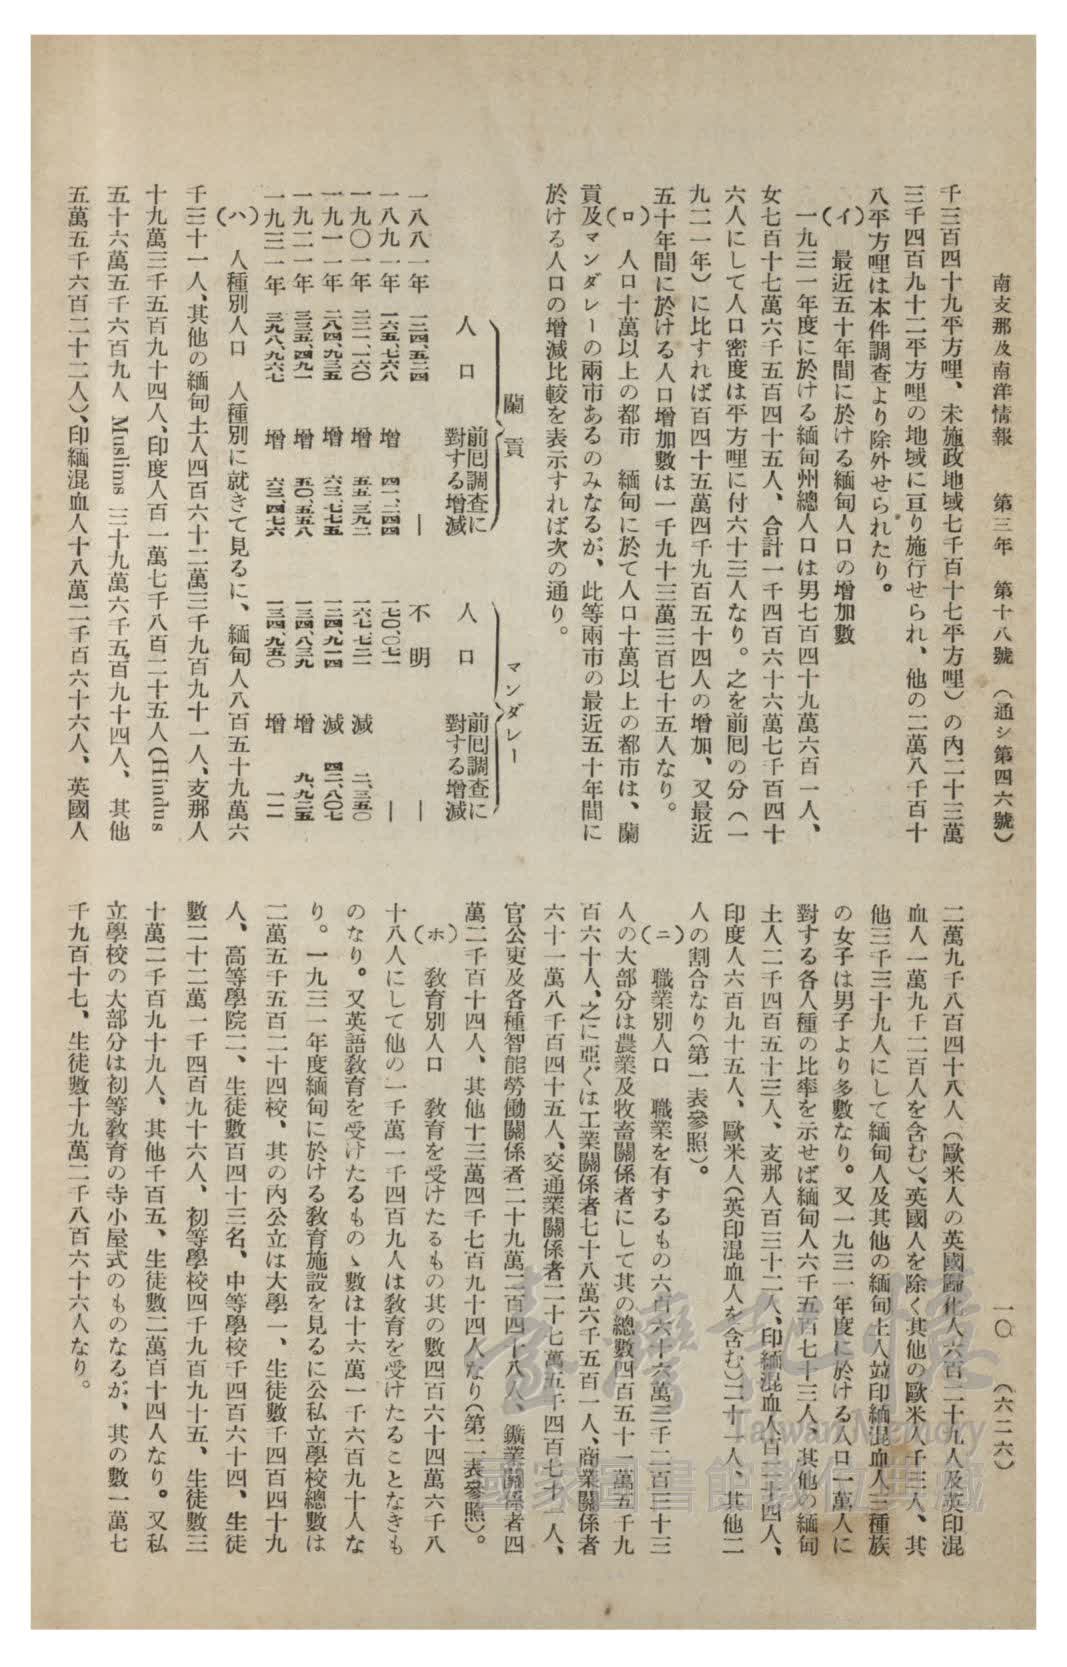 南支那及南洋情報　第三年　第十八號　（通シ第四六號）
一〇　（六二六）
千三百四十九平方哩、未施政地域七千百十七平方哩）の內二十三萬
三千四百九十二平方哩の地域に亘り施行せられ、他の二萬八千百十
八平方哩は本件調査より除外せられたり。
（イ）　最近五十年間に於ける緬甸人口の增加數
一九三一年度に於ける緬甸州總人口は男七百四十九萬六百一人、
女七百十七萬六千五百四十五人、合計一千四百六十六萬七千百四十
六人にして人口密度は平方哩に付六十三人なり。之を前囘の分（一
九二一年）に比すれば百四十五萬四千九百五十四人の增加、又最近
五十年間に於ける人口增加數は一千九十三萬三百七十五人なり。
（ロ）　人口十萬以上の都市　緬甸に於て人口十萬以上の都市は、蘭
貢及マンダレーの兩市あるのみなるが、此等兩市の最近五十年間に
於ける人口の增減比較を表示すれば次の通り。
蘭貢　マンダレー
人口　前囘調査に對する增減　人口　前囘調査に對する增減
一八八一年　一二四、五二四　—　不明　—
一八九一年　一六五、七六八　增　四一、二四四　一七〇、〇七一　—
一九〇一年　二二一、一六〇　增　五五、三九二　一六七、七二一　減　二、三五〇
一九一一年　二八四、九三五　增　六三、七七五　一二四、九一四　減　四二、八〇七
一九二一年　三三五、四九一　增　五〇、五五八　一三四、八三九　增　九、九二五
一九三一年　三九八、九六七　增　六三、四七六　一三四、九五〇　增　一一一
（ハ）　人種別人口　人種別に就きて見るに、緬甸人八百五十九萬六
千三十一人、其他の緬甸土人四百六十二萬三千九百九十一人、支那人
十九萬三千五百九十四人、印度人百一萬七千八百二十五人（Hindus
五十六萬五千六百九人 Muslims 三十九萬六千五百九十四人、其他
五萬五千六百二十二人）、印緬混血人十八萬二千百六十六人、英國人
二萬九千八百四十八人（歐米人の英國歸化人六百二十九人及英印混
血人一萬九千二百人を含む）、英國人を除く其他の歐米人千三人、其
他三千三十九人にして緬甸人及其他の緬甸土人竝印緬混血人三種族
の女子は男子より多數なり。又一九三一年度に於ける人口一萬人に
對する各人種の比率を示せば緬甸人六千五百七十三人、其他の緬甸
土人二千四百五十三人、支那人百三十二人、印緬混血人百二十四人、
印度人六百九十五人、歐米人（英印混血人を含む）二十一人、其他二
人の割合なり（第一表參照）。
（ニ）　職業別人口　職業を有するもの六百六十六萬三千二百三十三
人の大部分は農業及牧畜關係者にして其の總數四百五十一萬五千九
百六十人、之に亞ぐは工業關係者七十八萬六千五百一人、商業關係者
六十一萬八千百四十五人、交通業關係者二十七萬五千四百七十一人、
官公吏及各種智能勞働關係者二十九萬二百四十八人、鑛業關係者四
萬二千百十四人、其他十三萬四千七百九十四人なり（第二表參照）。
（ホ）　敎育別人口　敎育を受けたるもの其の數四百六十四萬六千八
十八人にして他の一千萬一千四百九人は敎育を受けたることなきも
のなり。又英語敎育を受けたるものヽ數は十六萬一千六百九十人な
り。一九三一年度緬甸に於ける敎育施設を見るに公私立學校總數は
二萬五千五百二十四校、其の內公立は大學一、生徒數千四百四十九
人、高等學院二、生徒數百四十三名、中等學校千四百六十四、生徒
數二十二萬一千四百九十六人、初等學校四千九百九十五、生徒數三
十萬二千百九十九人、其他千百五、生徒數二萬百十四人なり。又私
立學校の大部分は初等敎育の寺小屋式のものなるが、其の數一萬七
千九百十七、生徒數十九萬二千八百六十六人なり。
臺灣記憶
Taiwan Memory
國家圖書館數位典藏